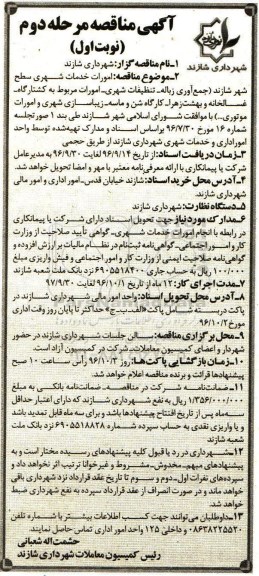 آگهی مناقصه مرحله دوم
(نوبت اول)
شهرداری شازند
۱-نام مناقصه گزار: شهرداری شازند
۲-موضوع مناقصه: امورات خدمات شهری سطح
شهر شازند (جمع‌آوری زباله- تنظیفات شهری- امورات مربوط به کشتارگاه-
غسالخانه و بهشت زهرا- کارگاه شن و ماسه- زیباسازی شهری و امورات
موتوری...) با موافقت شورای اسلامی شهر شازند طی بند ۱ صورتجلسه
شماره ۱۶ مورخ ۹۶/۷/۳۰ براساس اسناد و مدارک تهیه‌شده توسط واحد
امور اداری و خدمات شهری شهرداری شازند از طریق حجمی
۳-زمان دریافت اسناد: از تاریخ ۹۶/۹/۱۴ لغایت ۹۶/۹/۳۰ به مدیرعامل
شرکت یا پیمانکاری با ارائه معرفی‌نامه معتبر با مهر و امضا تحویل خواهد شد.
۴-آدرس محل خرید اسناد: شازند خیابان قدس- امور اداری و امور مالی
شهرداری شازند.
۵-دستگاه نظارت: شهرداری شازند
۶-مدارک مورد نیاز جهت تحویل اسناد دارای شرکت یا پیمانکاری
در رابطه با انجام امورات خدمات شهری- گواهی تأیید صلاحیت از وزارت
کار و امور اجتماعی- گواهی‌نامه ثبت‌نام در نظام مالیات بر ارزش افزوده و
گواهی‌نامه صلاحیت ایمنی از وزارت کار و امور اجتماعی و فیش واریزی مبلغ
۱۰۰/۰۰۰ ریال به حساب جاری ۶۹۰۵۵۱۸۴۰۰ نزد بانک ملت شعبه شازند
۷-مدت اجرای کار: ۱۲ ماه از تاریخ ۹۶/۱۰/۱ لغایت ۹۷/۹/۳۰
۸-آدرس محل تحویل اسناد: واحد امور مالی شهرداری شازند در
پاکت دربسته شامل پاکت «الف- ب- ج» حداکثر تا پایان روز وقت اداری
مورخ ۹۶/۱۰/۲
۹-محل برگزاری مناقصه: سالن جلسات شهرداری شازند در حضور
شهردار و اعضای کمیسیون معاملات- شرکت در کمیسیون آزاد است.
۱۰-زمان بازگشایی پاکت‌ها: روز ۹۶/۱۰/۳ رأس ساعت ۱۰ صبح
پیشنهادها قرائت و برنده مناقصه اعلام خواهد شد.
۱۱-ضمانت‌نامه شرکت در مناقصه- ضمانت‌نامه بانکی به مبلغ
۱/۳۵۶/۰۰۰/۰۰۰ ریال به نفع شهرداری شازند که دارای اعتبار حداقل
سه‌ماه پس از تاریخ افتتاح پیشنهادها باشد و برای سه ماه قابل تمدید باشد
و یا واریز نقدی به حساب سپرده شماره ۶۹۰۵۵۱۸۸۲۸ نزد بانک ملت
شعبه شازند
۱۲-شهرداری در رد یا قبول کلیه پیشنهادهای رسیده مختار است و به
پیشنهادهای مبهم- مخدوش- مشروط و غیرخوانا ترتیب اثر نخواهد داد و
سپرده‌های نفرات اول- دوم و سوم تا تاریخ عقد قرارداد نزد شهرداری باقی
خواهد ماند و در صورت انصراف از عقد قرارداد سپرده به نفع شهرداری ضبط
خواهد شد.
۱۳-داوطلبان می‌توانند جهت کسب اطلاعات بیشتر با شماره تلفن
۰۸۶۳۸۲۲۵۵۲۰ و داخلی ۱۲۵ واحد امور اداری تماس حاصل نمایند.
حشمت‌اله شعبانی
رئیس کمیسیون معاملات شهرداری شازند